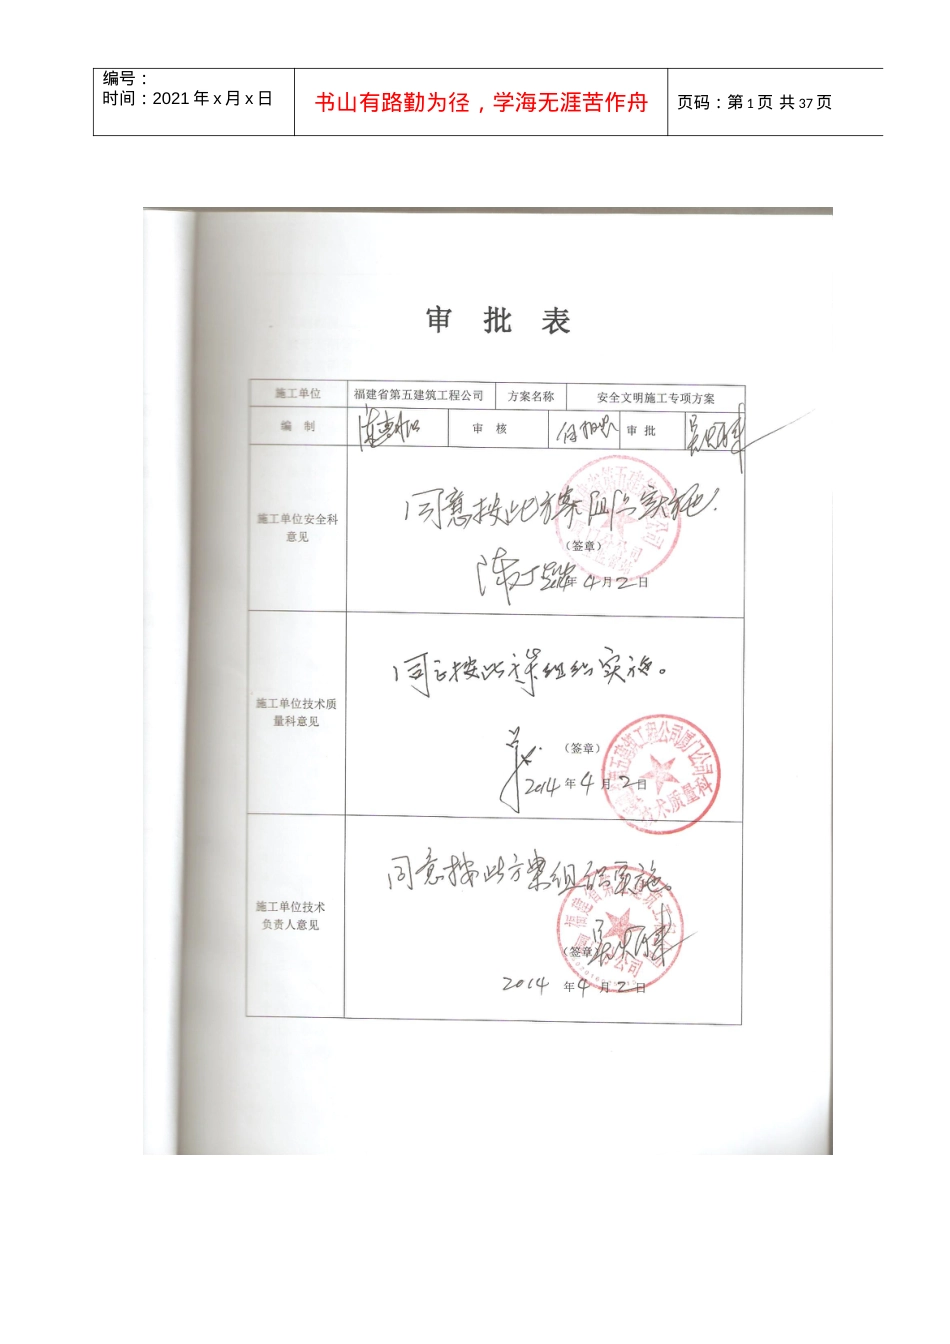 编号：
时间：2021年x月x日
书山有路勤为径，学海无涯苦作舟
页码：第1页 共37页
审 批 表
施工单位 福建省第五建筑工程公司 方案名称 安全文明施工专项方案
编 制 审 核 审 批
施工单位安全科
意见
同意按此方案组织实施.
（签章）
年 4 月 2 日
施工单位技术质
量科意见
同意按此方案组织实施。
（签章）
2014 年 4 月 2 日
技术质量科
施工单位技术
负责人意见
同意按此方案组织实施。
（签章）
2014 年 4 月 2 日